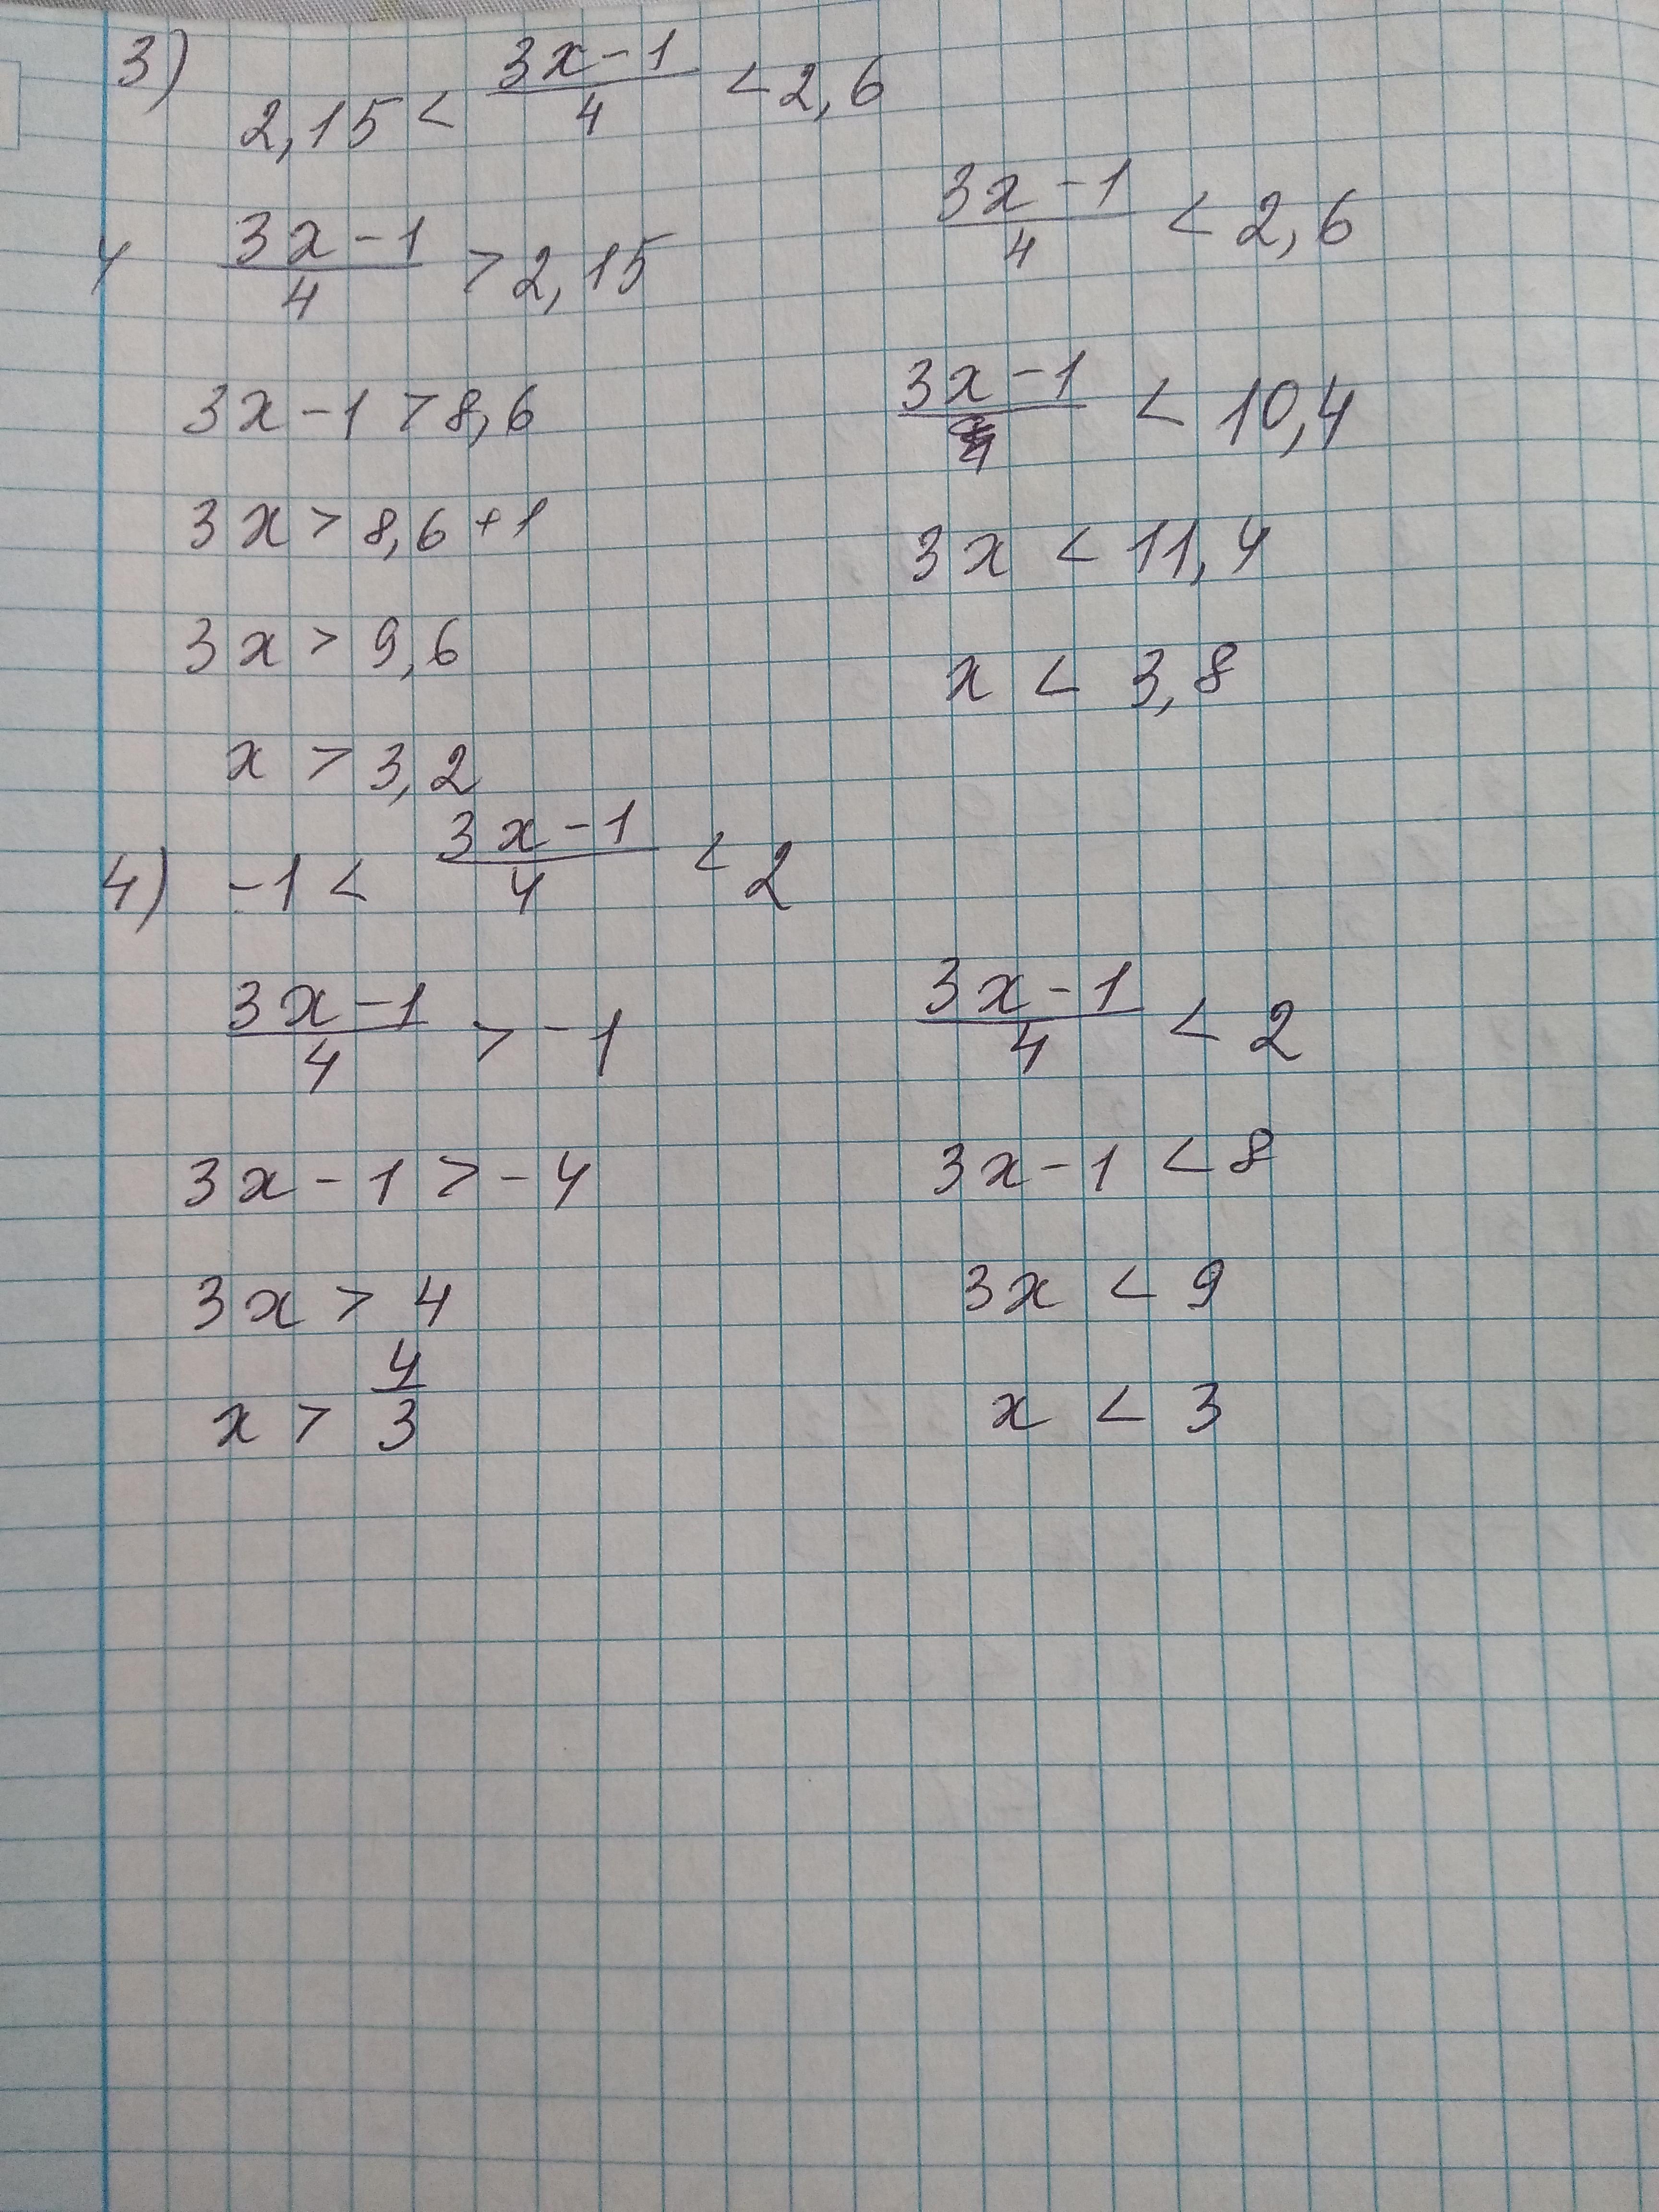 3) 2,15 < (3x-1)/4 < 2,6
(3x-1)/4 > 2,15
(3x-1)/4 < 2,6
3x-1 > 8,6
(3x-1)/ < 10,4
3x > 8,6+1
3x < 11,4
3x > 9,6
x < 3,8
x > 3,2
4) -1 < (3x-1)/4 < 2
(3x-1)/4 > -1
(3x-1)/4 < 2
3x-1 > -4
3x-1 < 8
3x > 4
3x < 9
x > 4/3
x < 3